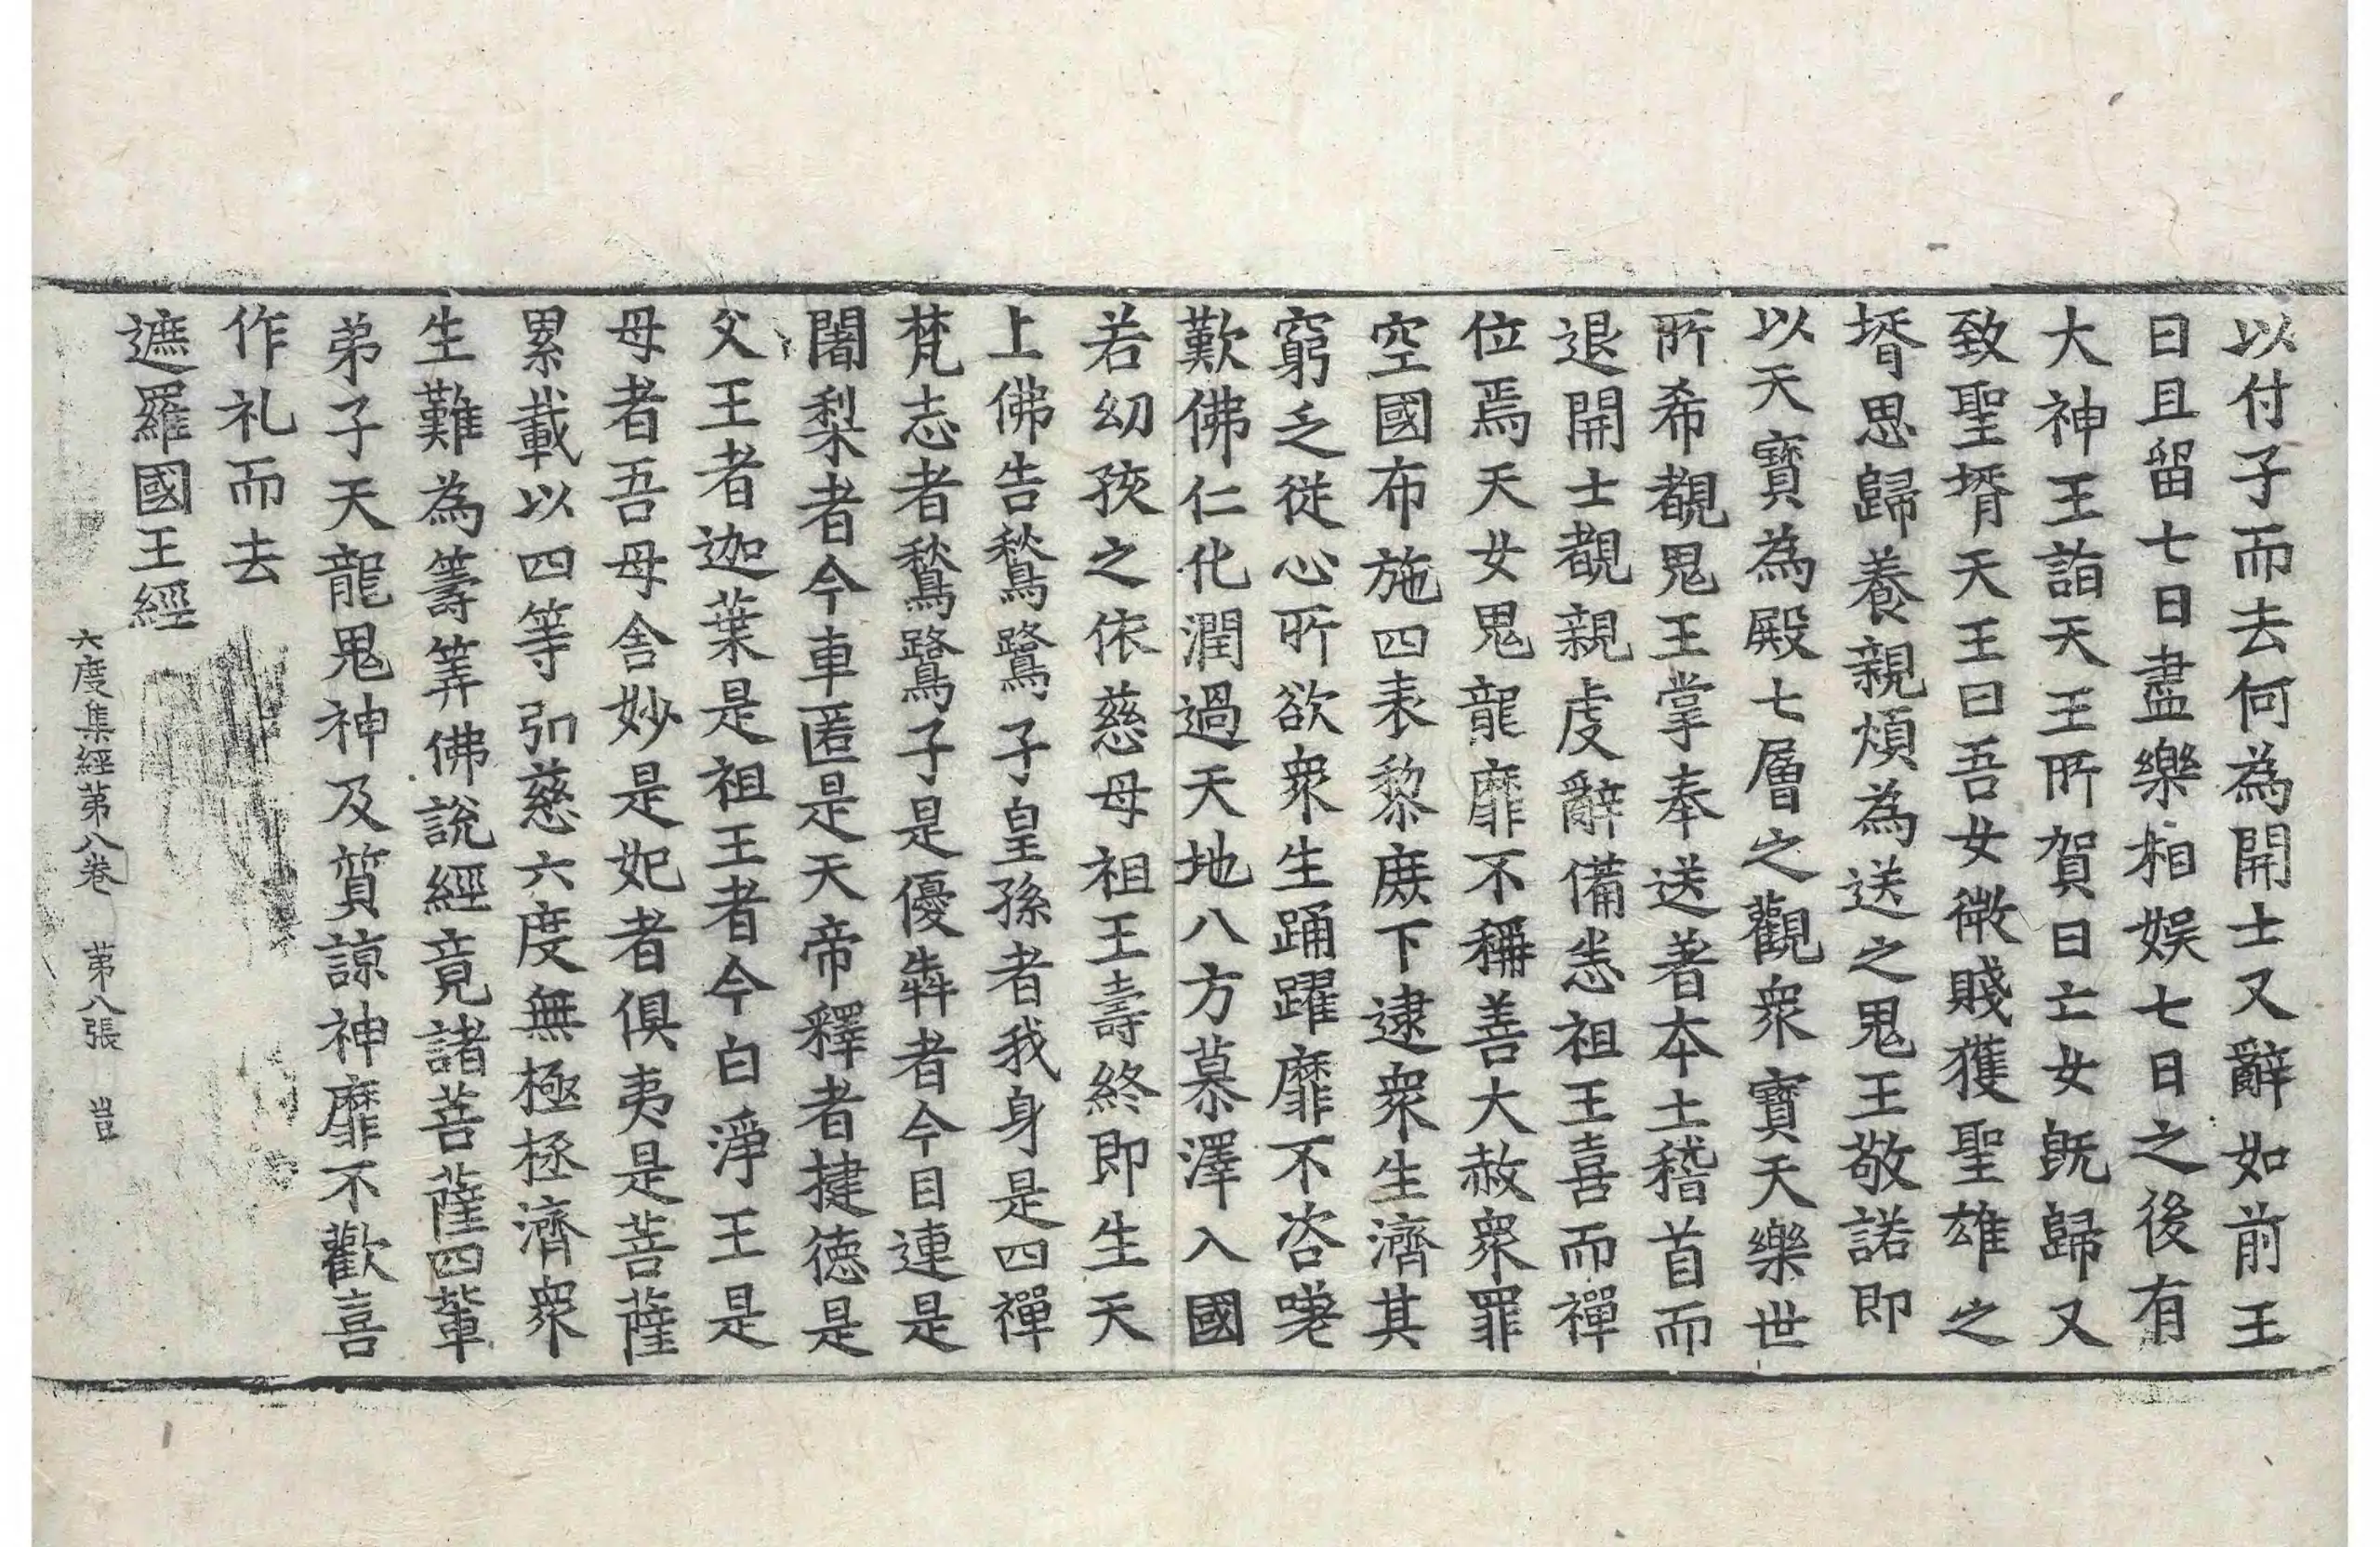 以付子而去何為開士又辭如前王
曰且留七日盡樂相娛七日之後有
大神王詣天王所賀曰亡女旣歸又
致聖壻天王曰吾女微賤獲聖雄之
壻思歸養親煩為送之鬼王敬諾即
以天寶為殿七層之觀衆寶天樂世
所希覩鬼王掌奉送著本土稽首而
退開士覩親虔辭備悉祖王喜而禪
位焉天女鬼龍靡不稱善大赦衆罪
空國布施四表黎庻下逮衆生濟其
窮乏從心所欲衆生踊躍靡不咨嗟
歎佛仁化潤過天地八方慕澤入國
若幼孩之依慈母祖王壽終即生天
上佛告鶖鷺子皇孫者我身是四禪
梵志者鶖鷺子是優犇者今目連是
闍梨者今車匿是天帝釋者揵德是
父王者迦葉是祖王者今白淨王是
母者吾母舍妙是妃者俱夷是菩薩
累載以四等弘慈六度無極拯濟衆
生難為籌筭佛說經竟諸菩薩四輩
弟子天龍鬼神及質諒神靡不歡喜
作礼而去
遮羅國王經
六度集經第八卷　第八張　豈